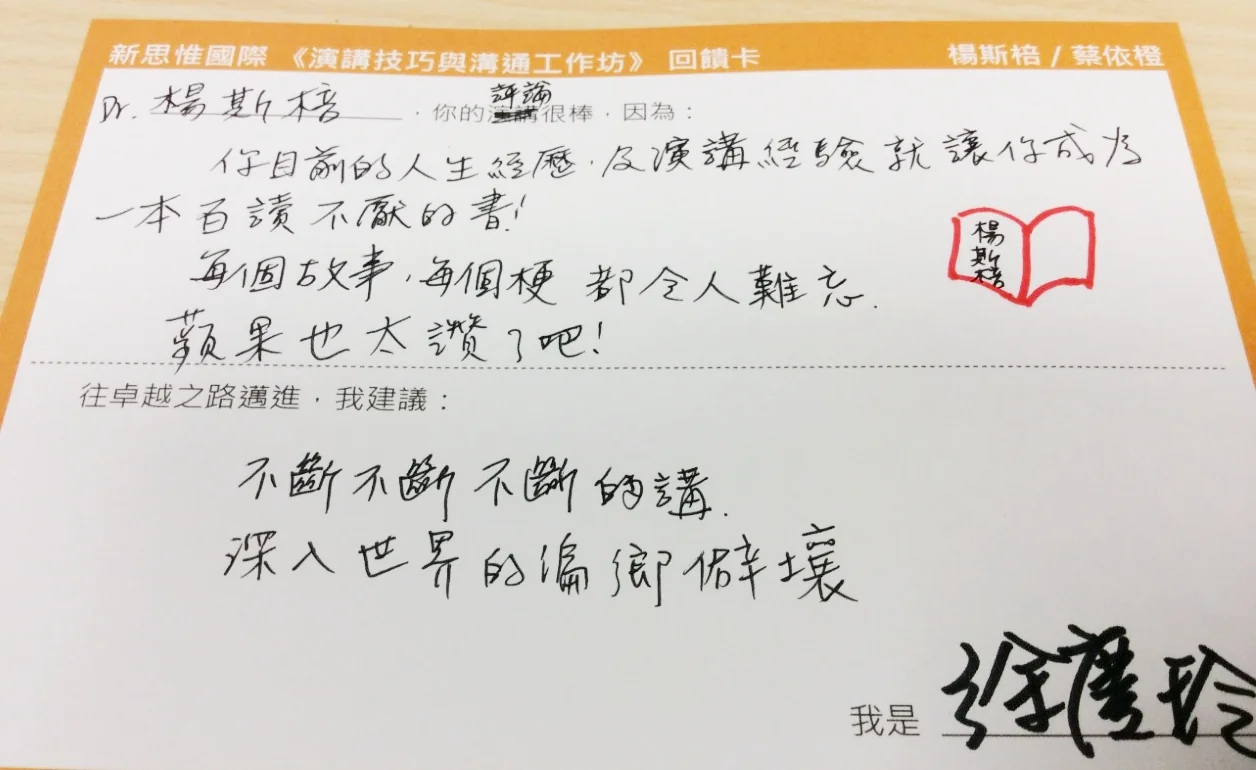 新思惟國際 《演講技巧與溝通工作坊》 回饋卡 楊斯棓 / 蔡依橙
Dr. 楊斯棓，你的評論很棒，因為：
你目前的人生經歷、及演講經驗就讓你成為
一本百讀不厭的書！
每個故事，每個梗都令人難忘.
蘋果也太讚了吧！
楊斯棓
往卓越之路邁進，我建議：
不斷不斷不斷的講.
深入世界的偏鄉僻壤
我是 徐 玲